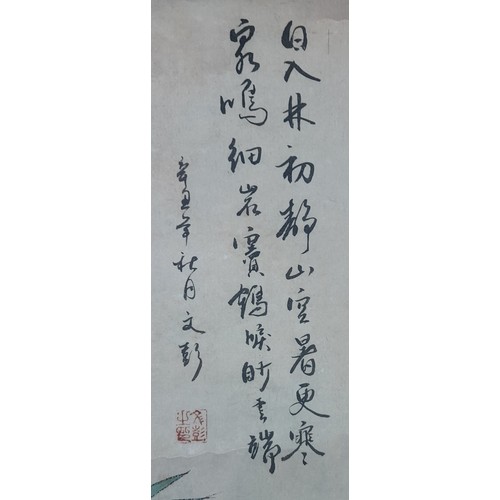 日入林初静山空暑更寒
泉鳴細岩竇鶴唳眇雲端
辛丑年秋月文彭
文彭之印